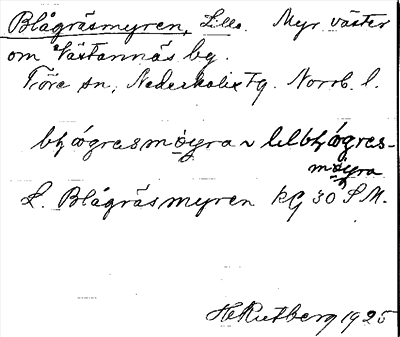 Blågräsmyren, Lilla. Myr väster
om Västannäs by.
Töre sn, Nederkalix tg. Norrb. l.
bḷågresmöyra ~ lilbḷågres-
möyra
L. Blågräsmyren kG 30 S M.
H. Rutberg 1925